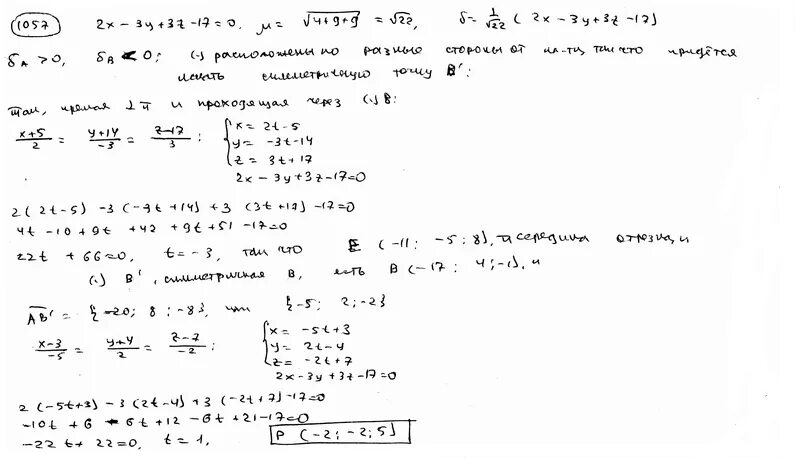 1057 2x − 3y + 3z − 17 = 0, μ = √(4+9+9) = √22, δ = 1/√22 (2x − 3y + 3z − 17)
δA > 0, δB < 0; (·) расположены по разные стороны от пл-ти, так что придётся
искать симметричную точку B':
так, прямая ⊥ π и проходящая через (·) B:
(x+5)/2 = (y+14)/−3 = (z−17)/3 : { x = 2t − 5
y = −3t − 14
z = 3t + 17
2x − 3y + 3z − 17 = 0
2(2t−5) −3(−3t+14) +3(3t+17) −17=0
4t −10 + 9t + 42 + 9t + 51 −17=0
22t + 66 = 0, t = −3, так что E (−11; −5; 8), т. середина отрезка, и
(·) B', симметричная B, есть B (−17; 4; −1), и
AB' = {−20; 8; −8}, или {−5; 2; −2}
(x−3)/−5 = (y+4)/2 = (z−7)/−2 : { x = −5t + 3
y = 2t − 4
z = −2t + 7
2x − 3y + 3z − 17 = 0
2(−5t+3) − 3(2t−4) + 3(−2t+7) −17=0
−10t + 6 − 6t + 12 − 6t + 21 − 17 = 0
−22t + 22 = 0, t = 1, P (−2; −2; 5)